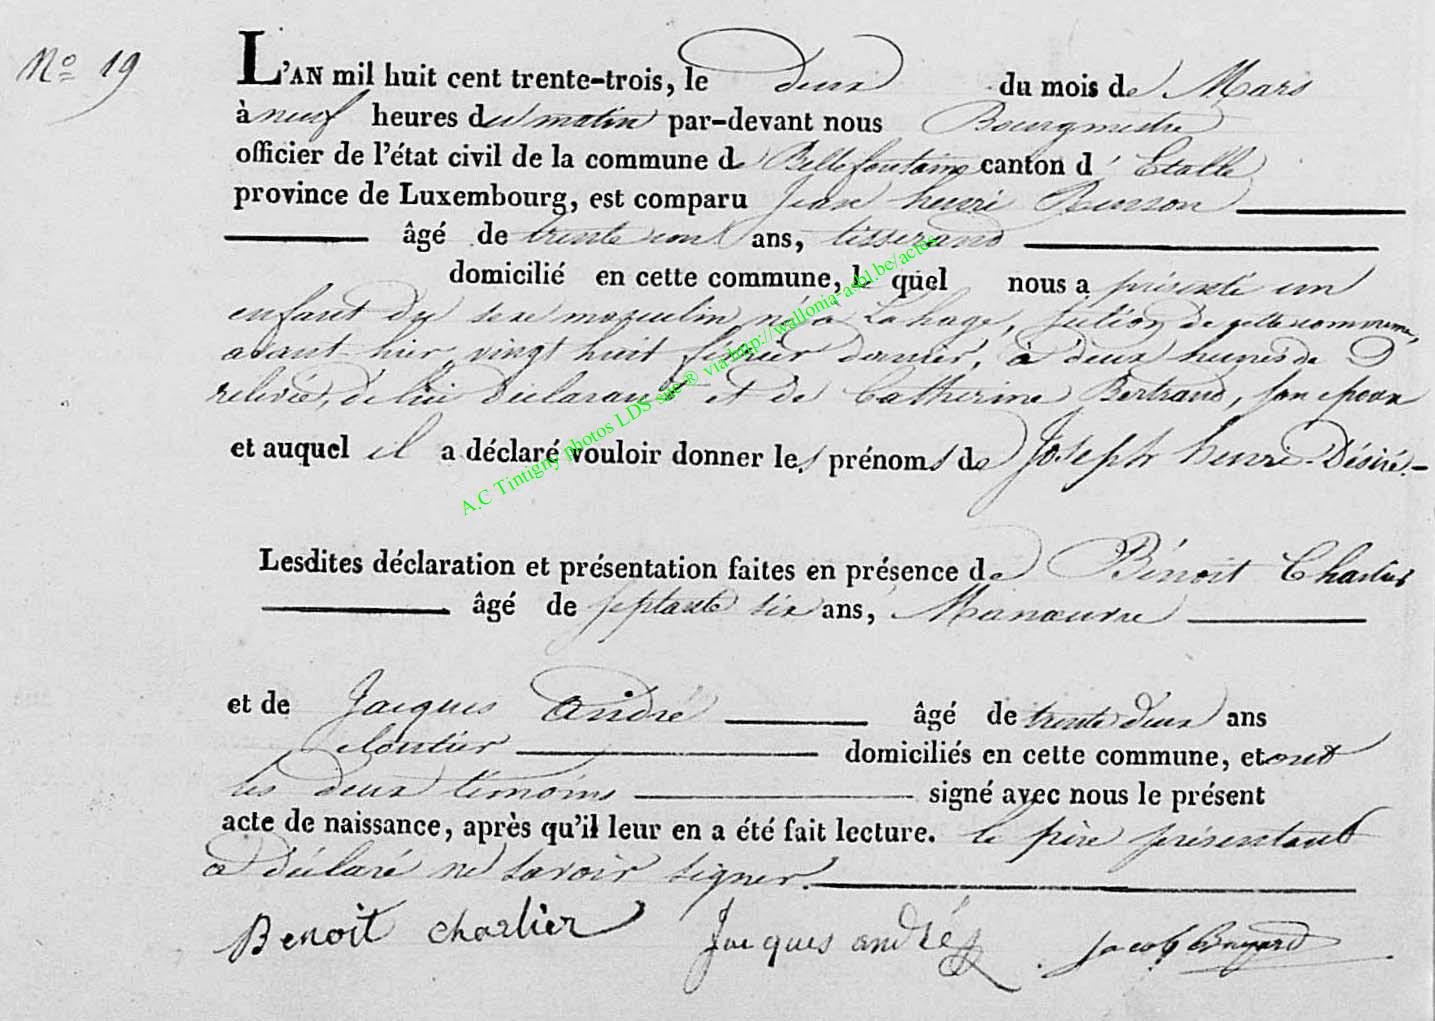 N° 19
L'AN mil huit cent trente-trois, le deux du mois de Mars
à neuf heures du matin par-devant nous Bourgmestre
officier de l'état civil de la commune de Bellefontaine canton d'Etalle
province de Luxembourg, est comparu Jean henri
âgé de trente ans, tisserand
domicilié en cette commune, le quel nous a présenté un
enfant du sexe masculin né à Lahage, section de cette commune,
avant hier, vingt huit février dernier, à deux heures de
relevée, de lui déclarant et de Catherine Bertrand, son epouse
et auquel il a déclaré vouloir donner les prénoms de Joseph henri Désiré.
Lesdites déclaration et présentation faites en présence de Bénoit Charlier
âgé de septante six ans, Manœuvre
et de Jacques André âgé de trente deux ans
cloutier domiciliés en cette commune, et ont
les deux témoins signé avec nous le présent
acte de naissance, après qu'il leur en a été fait lecture. le père présentant
a déclaré ne savoir signer.
Benoit charlier Jacques andré Jacob
A.C Tintigny photos LDS site ® via http://wallonia-asbl.be/actes